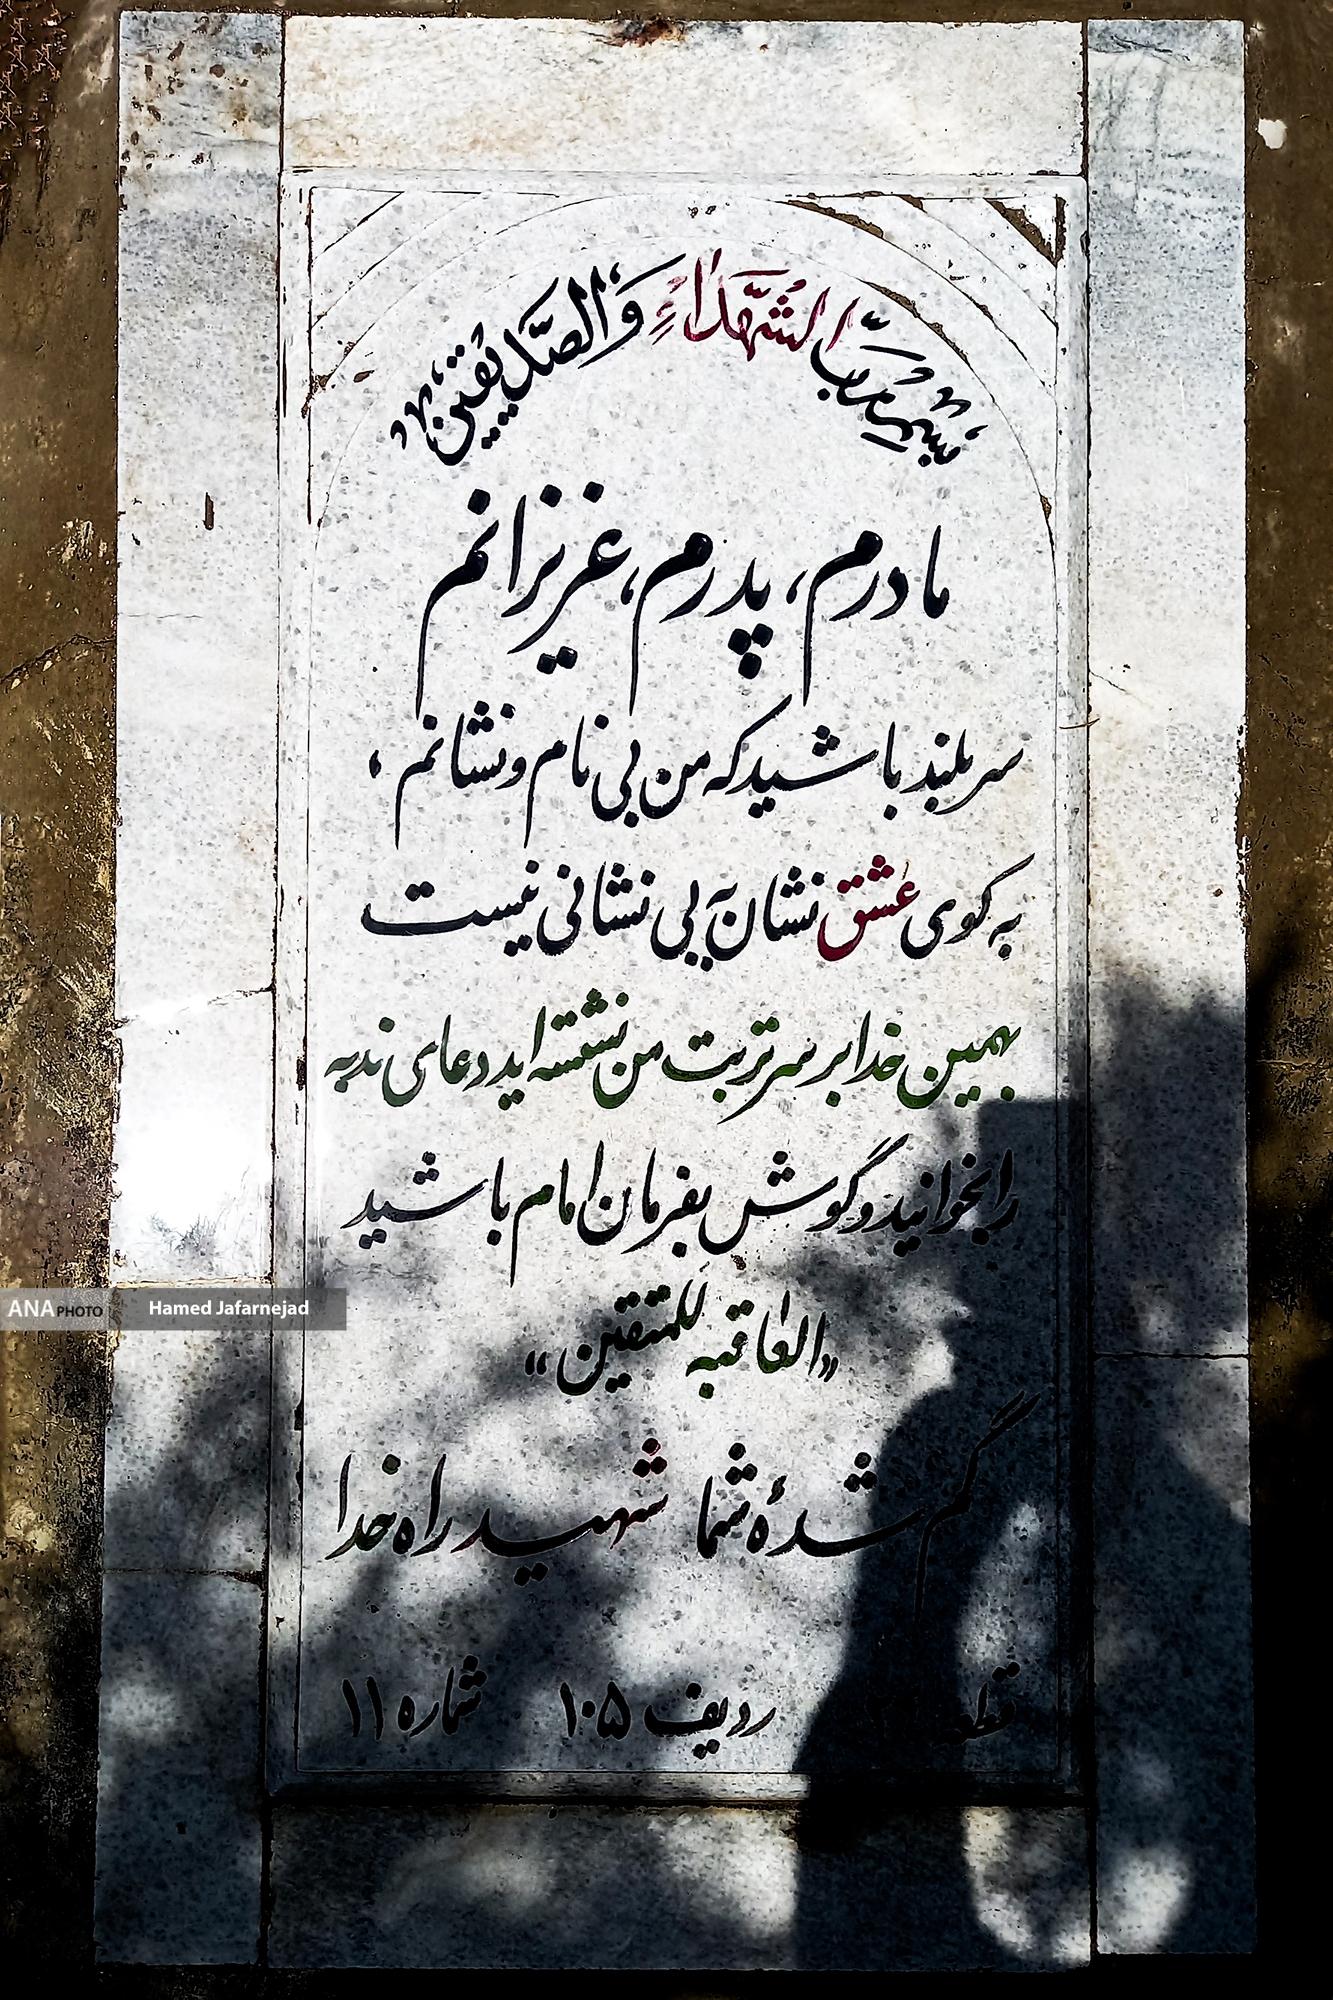 بسم رب الشُّهَدَاءِ وَالصِّدِّیقِین
مادرم، پدرم، عزیزانم
سربلند باشید که من بی نام و نشانم،
به کوی عشق نشان به ز بی نشانی نیست
بهمین خدا بر سر تربت من نشسته اید دعای ندبه
را بخوانید و گوش بفرمان امام باشید
«العاقبه للمتقین»
گم شدهٔ شما شهید راه خدا
قطعه ردیف ۱۰۵ شماره ۱۱
ANA PHOTO Hamed Jafarnejad